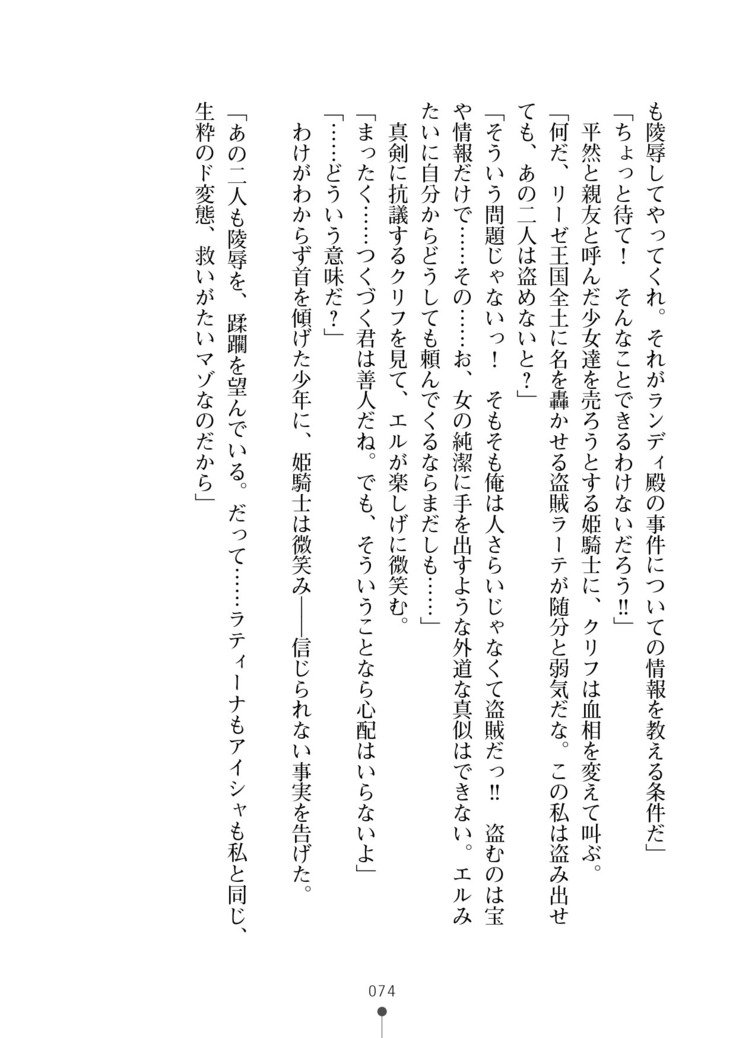 も陵辱してやってくれ。それがランディ殿の事件についての情報を教える条件だ」
「ちょっと待て！　そんなことできるわけないだろう‼」
　平然と親友と呼んだ少女達を売ろうとする姫騎士に、クリフは血相を変えて叫ぶ。
「何だ、リーゼ王国全土に名を轟かせる盗賊ラーテが随分と弱気だな。この私は盗み出せ
ても、あの二人は盗めないと？」
「そういう問題じゃないっ！　そもそも俺は人さらいじゃなくて盗賊だっ‼　盗むのは宝
や情報だけで……その……お、女の純潔に手を出すような外道な真似はできない。エルみ
たいに自分からどうしても頼んでくるならまだしも……」
　真剣に抗議するクリフを見て、エルが楽しげに微笑む。
「まったく……つくづく君は善人だね。でも、そういうことなら心配はいらないよ」
「……どういう意味だ？」
　わけがわからず首を傾げた少年に、姫騎士は微笑み――信じられない事実を告げた。
「あの二人も陵辱を、蹂躙を望んでいる。だって……ラティーナもアイシャも私と同じ、
生粋のド変態、救いがたいマゾなのだから」
074